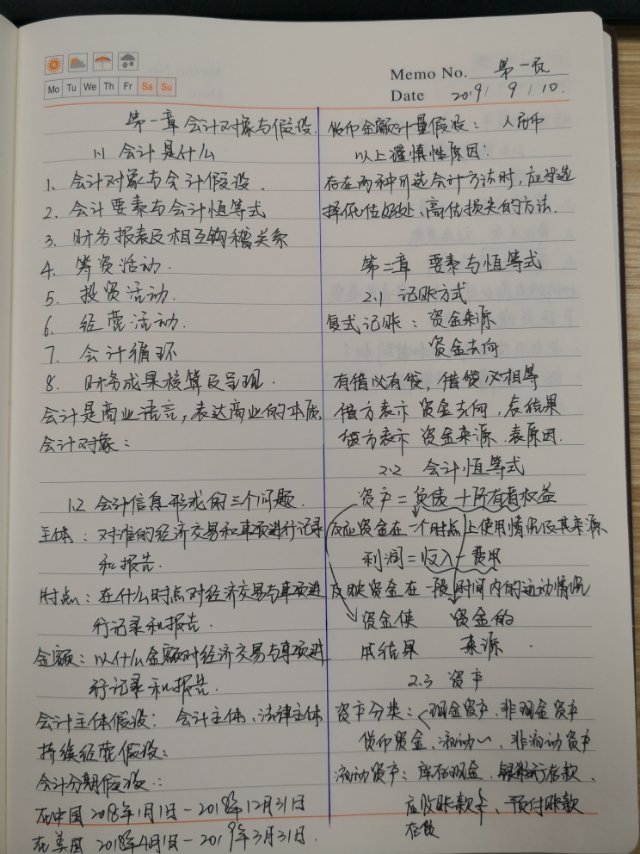 Memo No. 第一页
Mo Tu We Th Fr Sa Su
Date 2019 / 9 / 10.
第一章 会计对象与假设
1.1 会计是什么
1. 会计对象与会计假设.
2. 会计要素与会计恒等式
3. 财务报表及相互钩稽关系
4. 筹资活动.
5. 投资活动.
6. 经营活动.
7. 会计循环
8. 财务成果核算及呈现.
会计是商业语言,表达商业的本质
会计对象:
1.2 会计信息形成的三个问题.
主体: 对谁的经济交易和事项进行记录
和报告.
时点: 在什么时点对经济交易与事项进
行记录和报告.
金额: 以什么金额对经济交易与事项进
行记录和报告.
会计主体假设: 会计主体、法律主体
持续经营假设:
会计分期假设:
在中国 2018年1月1日-2018年12月31日
在美国 2018年4月1日-2019年3月31日.
货币金额计量假设: 人民币
以上谨慎性原因:
存在两种可选会计方法时,应当选
择低估好处、高估损失的方法.
第二章 要素与恒等式
2.1 记账方式
复式记账: 资金来源
资金去向
有借必有贷,借贷必相等
借方表示 资金去向,表结果
贷方表示 资金来源 表原因.
2.2 会计恒等式
资产=负债+所有者权益
反应资金在一个时点上使用情况及其来源
利润=收入-费用
反映资金在一段时间内的运动情况
资金使 资金的
用结果 来源.
2.3 资产
资产分类: 现金资产、非现金资产
货币资金、流动~、非流动资产
流动资产: 库存现金、银行存款、
应收账款、预付账款
存货